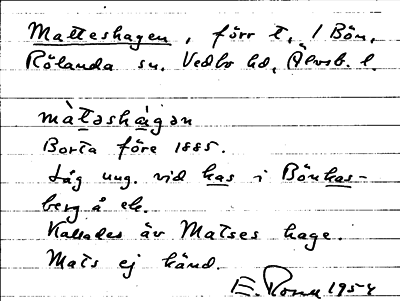 Matteshagen, förr t. 1 Bön,
Rölanda sn. Vedbo hd, Älvsb. l.
màtashàgan
Borta före 1885.
Låg ung. vid has i Bönhas-
berg å ek.
Kallades äv Matses hage.
Mats ej känd.
E. 1954